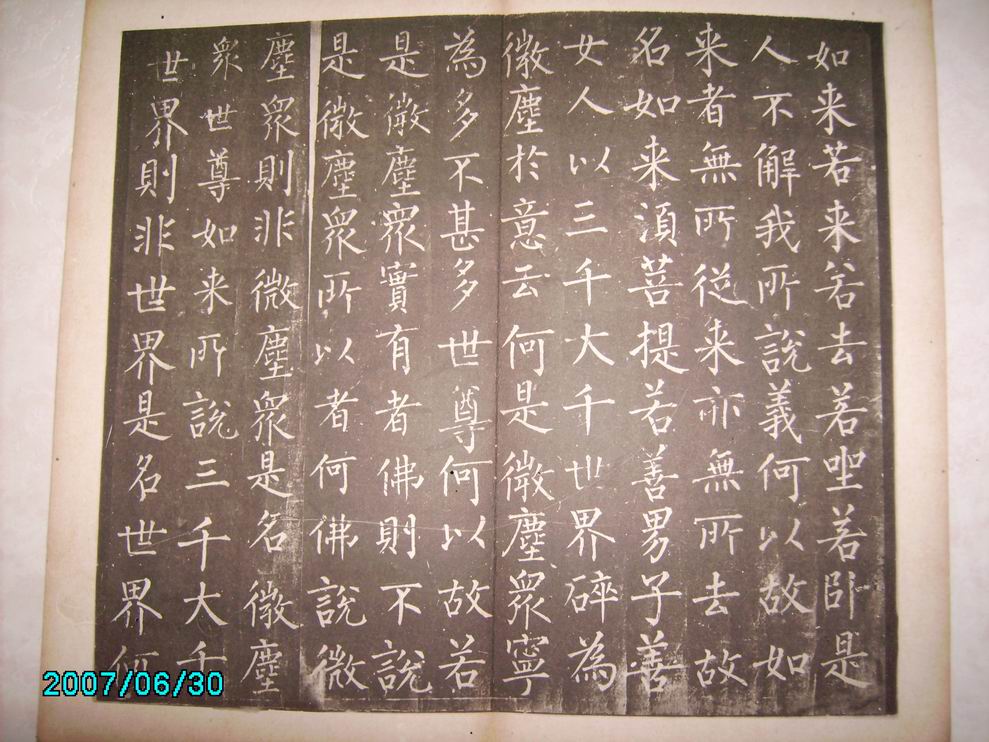 如来若来若去若坐若卧是
人不解我所說義何以故如
来者無所從来亦無所去故
名如来須菩提若善男子善
女人以三千大千世界碎為
微塵於意云何是微塵眾寧
為多不甚多世尊何以故若
是微塵眾實有者佛則不說
是微塵眾所以者何佛說微
塵眾則非微塵眾是名微塵
眾世尊如来所說三千大千
世界則非世界是名世界何
2007/06/30